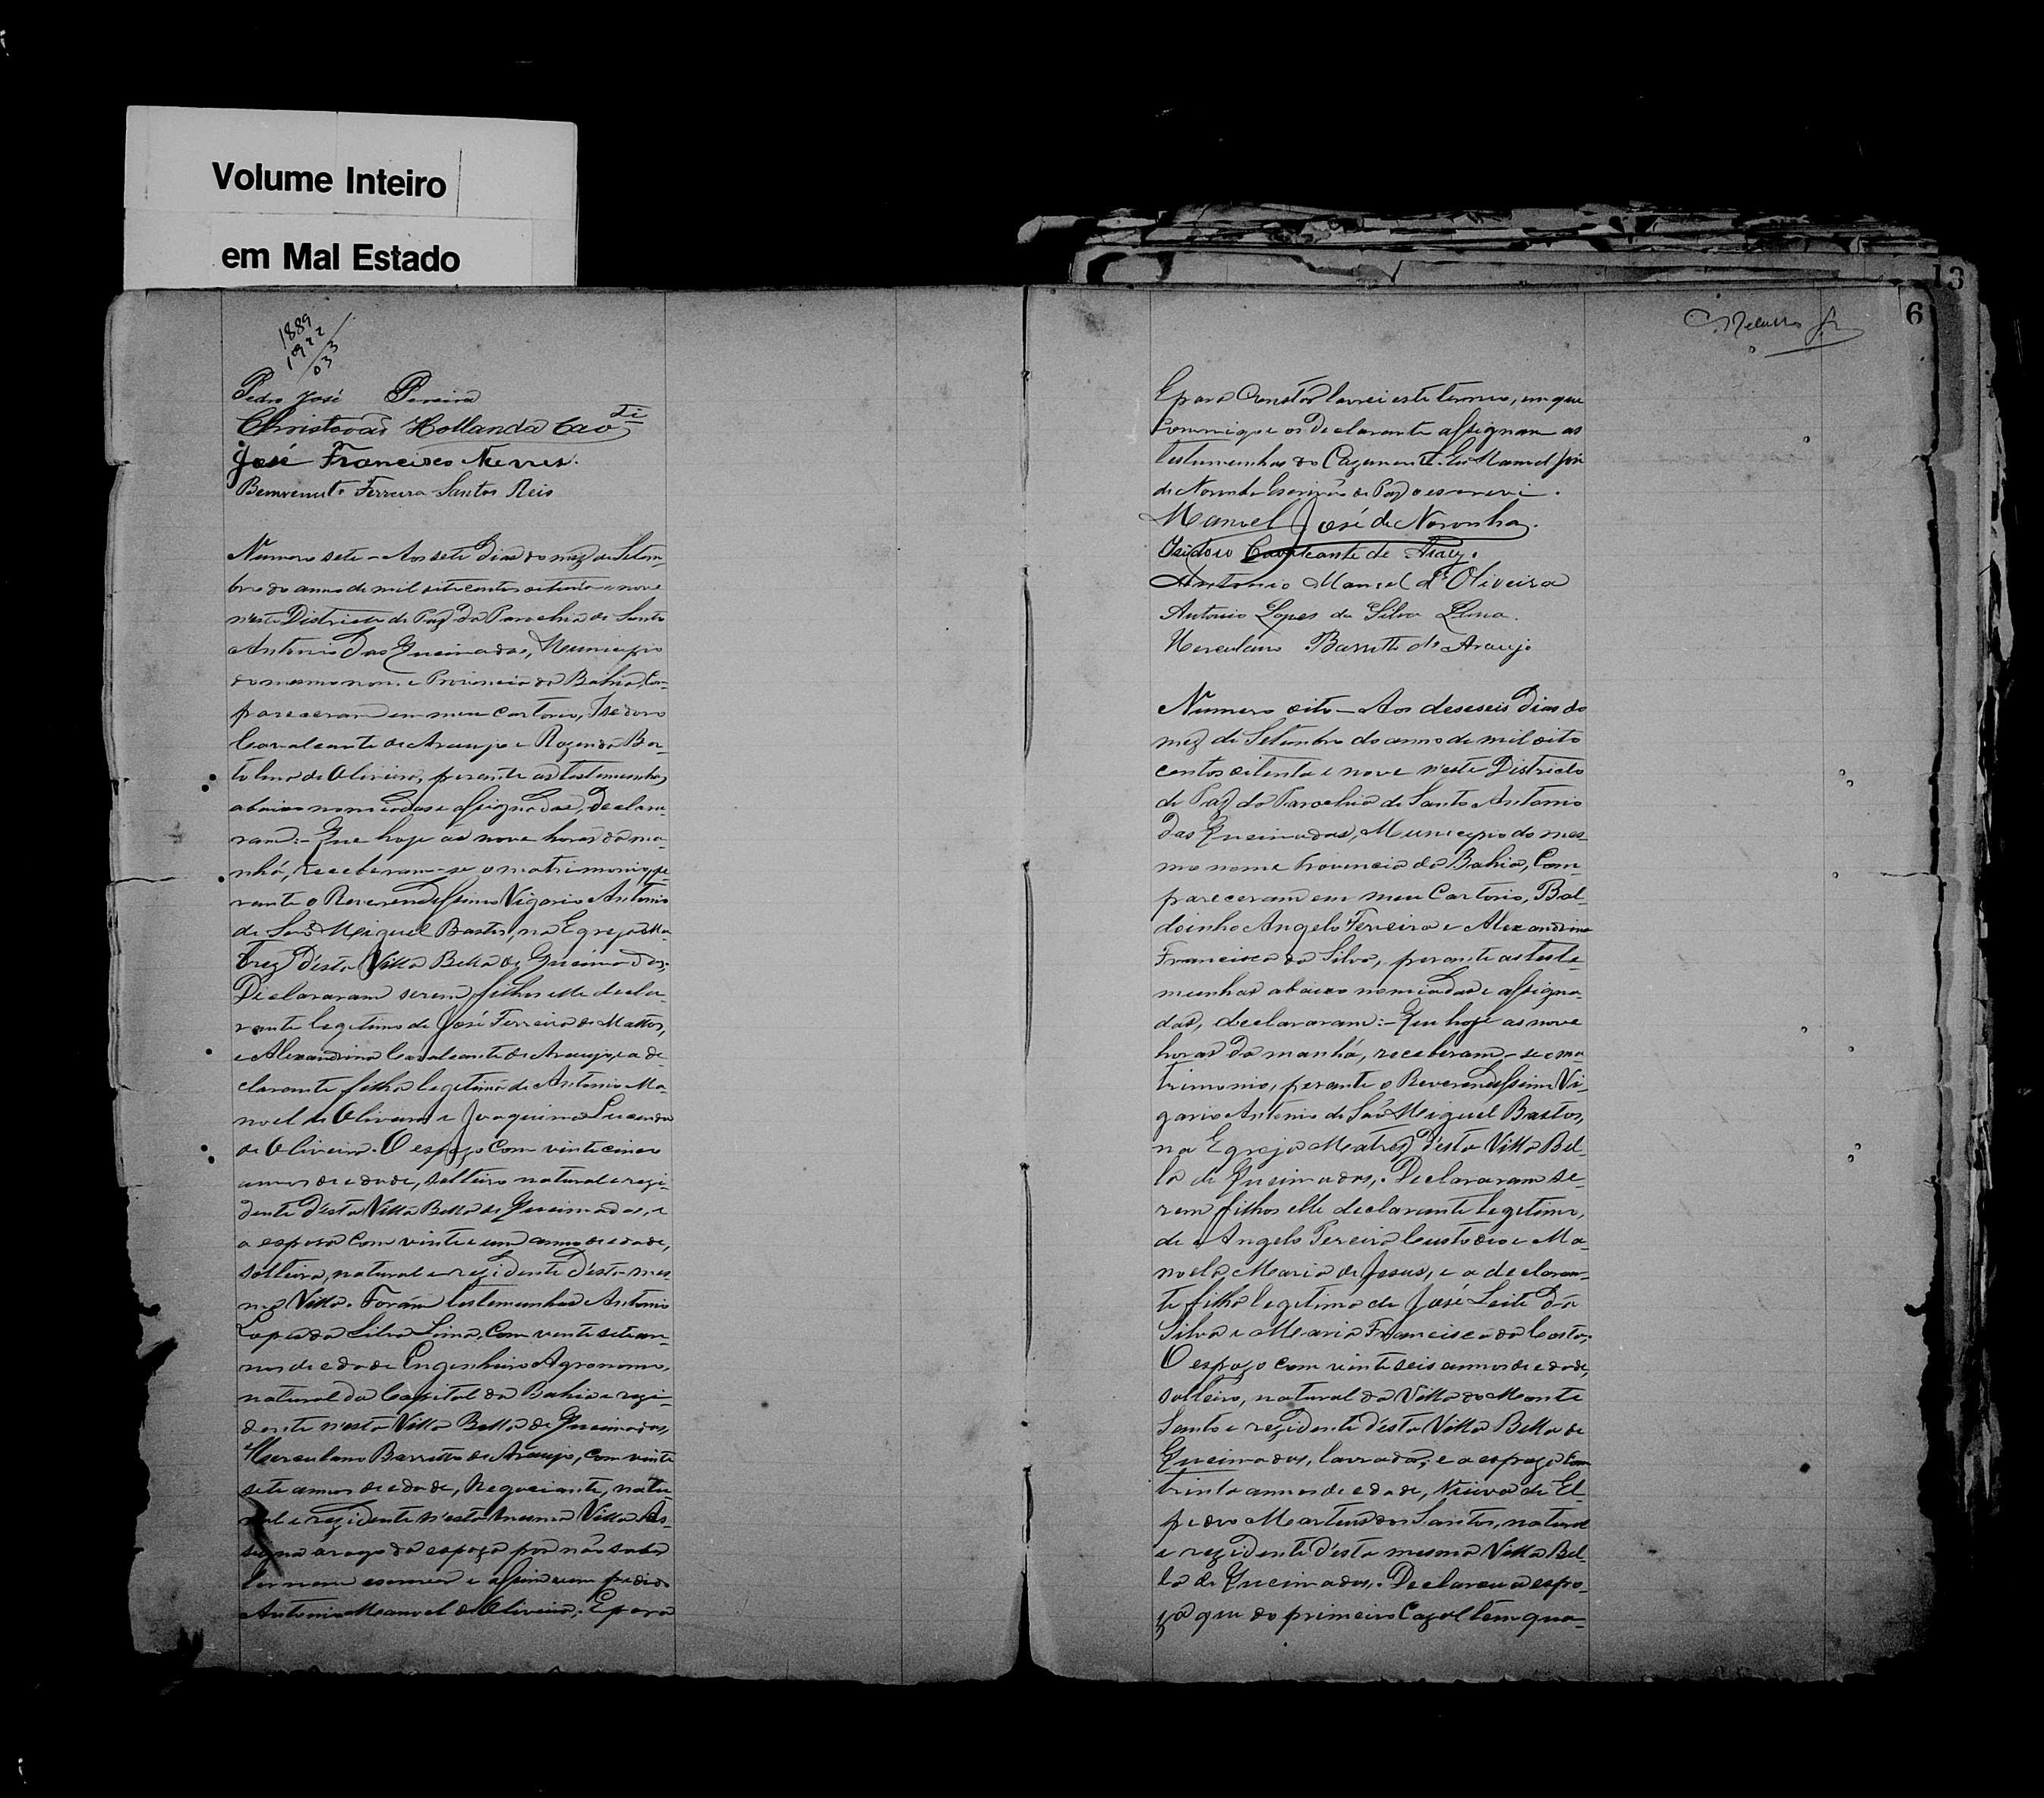 Volume Inteiro
em Mal Estado
13
6
1889
1922
03
Pedro José Pereira
Christovão Hollanda Cavti
José Francisco Neves.
Bemvenuto Ferreira Santos Reis
Numero sete – Aos sete Dias do mez de Setem-
bro do anno de mil oitocentos oitenta e nove
n'este Districto de Paz da Parochia de Santo
Antonio Das Queimadas, Municipio
do mesmo nome e Provincia da Bahia, Com-
pareceram em meu Cartorio, Isedoro
Cavalcante de Araujo e Rozenda Bar-
tolina de Oliveira, perante as testemunhas
abaixo nomeadas e assignadas, Declara-
ram:– Que hoje ás nove horas da ma-
nhã, receberam-se o matrimonio, pe-
rante o Reverendissimo Vigario Antonio
de São Miguel Bastos, na Egreja Ma-
triz D'esta Villa Bella de Queimadas;
Declararam serem filhos elle decla-
rante legetimo de José Ferreira de Mattos,
e Alexandrina Cavalcante de Araujo, e a de-
clarante filha legetima de Antonio Ma-
noel de Oliveira e Joaquina
de Oliveira. O espozo com vinte cinco
annos de edade, solteiro natural e rezi-
dente D'esta Villa Bella de Queimadas, e
a espoza Com vinte e um annos de edade,
solteira, natural e rezidente D'esta mes-
ma Villa. Forám testemunhas Antonio
Lopes da Silva Lima, Com vente sete an-
nos de edade Engenheiro Agronomo,
natural da Capital da Bahia e rezi-
dente n'esta Villa Bella de Queimadas,
Herculano Barretto de Araujo, Com vinte
sete annos de edade, Negociante, natu-
ral e rezidente n'esta mesma Villa. As-
signa a rogo da espoza por não saber
ler nem escrever e assim ser pedido
Antonio Manoel de Oliveira. E para
E para Constar lavrei este termo, em que
Commigo e os Declarante assignam as
testemunhas do Cazamento. Eu Manoel José
de Noronha Escrivão de Paz o escrevi.
Manoel José de Noronha.
Isidoro Cavalcante de Arauj.
Antonio Manoel d'Oliveira
Antonio Lopes da Silva Lima.
Herculano Barretto de Araujo
Numero oito – Aos deseseis Dias do
mez de Setembro do anno de mil oito
centos oitenta e nove n'este Districto
de Paz da Parochia de Santo Antonio
Das Queimadas, Municepio do mes-
mo nome Provencia da Bahia, Com-
pareceram em meu Cartorio, Bal-
doinho Angelo Ferreira e Alexandrina
Francisca da Silva, perante as teste-
munhas abaixo nomeadas e assigna-
das, declararam:– Que hoje as nove
horas da manhã, receberam-se o ma-
trimonio, perante o Reverendissimo Vi-
gario Antonio de São Miguel Bastos,
na Egreja Matriz D'esta Villa Bel-
la de Queimadas. Declararam se-
rem filhos elle declarante legetimo,
de Angelo Pereira Custodio e Ma-
noela Maria de Jesus, e a declaran-
te filha legetima de José Leite Da
Silva e Maria Francisca da Costa.
O espozo com vinte seis annos de edade,
solteiro, natural da Villa do Monte
Santo e rezidente D'esta Villa Bella de
Queimadas, lavrador; e a espoza Com
trinta annos de edade, Viuva de El-
pedio Martins dos Santos, natural
e rezidente D'esta mesma Villa Bel-
la de Queimadas. Declarou a espo-
za que do primeiro Cazal tem qua-